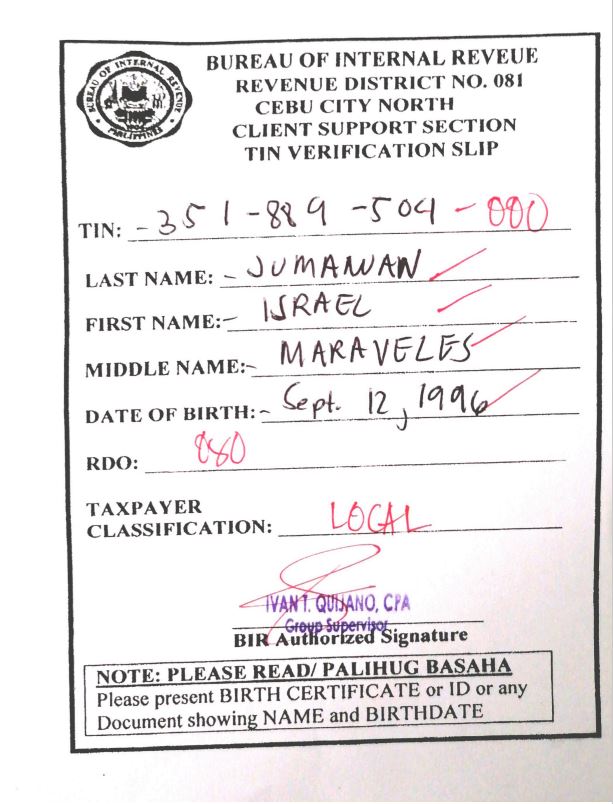 BUREAU OF INTERNAL REVENUE
PHILIPPINES
BUREAU OF INTERNAL REVEUE
REVENUE DISTRICT NO. 081
CEBU CITY NORTH
CLIENT SUPPORT SECTION
TIN VERIFICATION SLIP
TIN: -351-889-504-000
LAST NAME: - JUMAWAN
FIRST NAME:- ISRAEL
MIDDLE NAME:- MARAVELES
DATE OF BIRTH:- Sept. 12, 1996
RDO: 080
TAXPAYER
CLASSIFICATION: LOCAL
IVAN T. QUIJANO, CPA
Group Supervisor
BIR Authorized Signature
NOTE: PLEASE READ/ PALIHUG BASAHA
Please present BIRTH CERTIFICATE or ID or any
Document showing NAME and BIRTHDATE